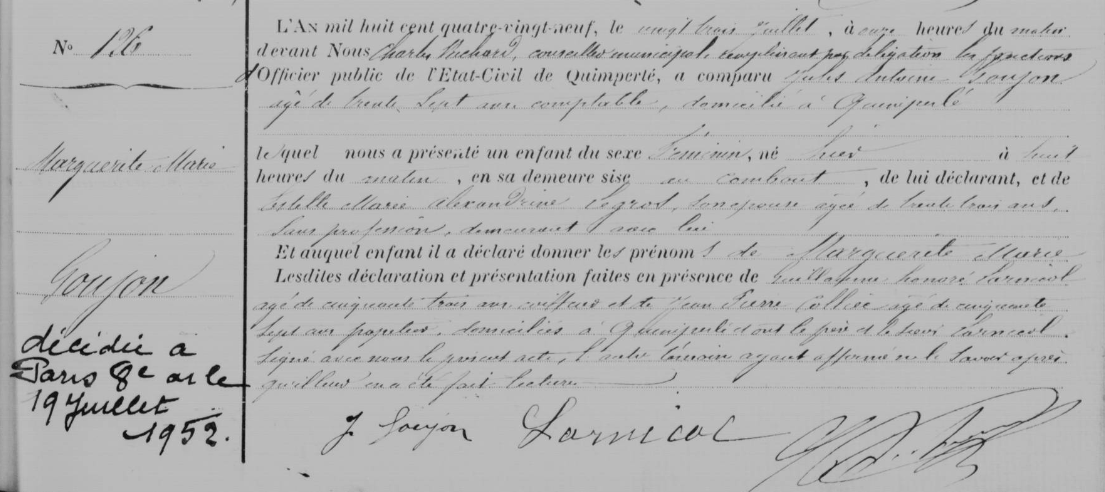 N° 126
Marguerite Marie
Goujon
décédée à
Paris 8e arr le
19 Juillet
1952.
L'An mil huit cent quatre-vingt-neuf, le vingt trois Juillet, à onze heures du matin
devant Nous Charles Richard, conseiller municipal remplissant par délégation les fonctions
d'Officier public de l'Etat-Civil de Quimperlé, a comparu Jules Antoine Goujon
agé de trente sept ans comptable, domicilié à Quimperlé
lequel nous a présenté un enfant du sexe Féminin, né hier à huit
heures du matin, en sa demeure sise au combout, de lui déclarant, et de
Marie Alexandrine Legros, son épouse agée de trente trois ans,
sans profession, demeurant avec lui
Et auquel enfant il a déclaré donner les prénoms de Marguerite Marie
Lesdites déclaration et présentation faites en présence de Guillaume honoré Larnicol
agé de cinquante trois ans coiffeur et de Jean Pierre agé de cinquante
sept ans, domiciliés à Quimperlé dont le père et le sieur Larnicol
signé avec nous le présent acte, l'autre témoin ayant affirmé ne le savoir après
qu'il leur en a été fait lecture
J Goujon Larnicol